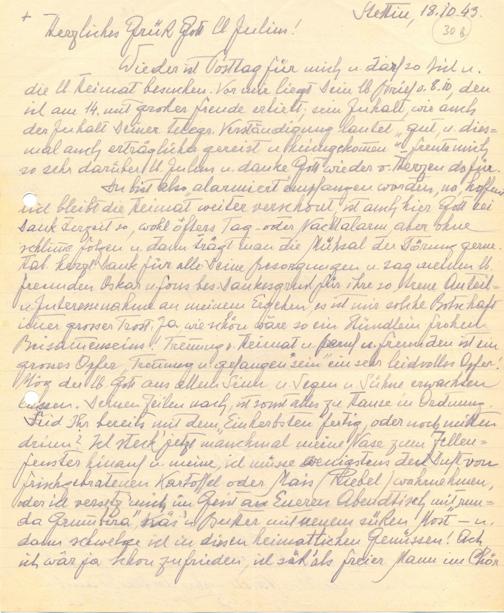 + Stettin, 18.10.43.
Herzliches Grüß Gott lb Julius!
30 B
Wieder ist Posttag für mich u. darf so Dich u.
die lb Heimat besuchen. Vor mir liegt Dein lb Brief v. 8.10, den
ich am 14. mit großer Freude erhielt, sein Inhalt, wie auch
der Inhalt Deiner telegr. Verständigung lautet „gut, u. dies-
mal auch erträglich gereist u. heimgekommen u. freute mich
so sehr darüber lb Julius u. danke Gott wieder v. Herzen dafür.
Du bist also „alarmiert" empfangen worden, no, hoffent-
lich bleibt die Heimat weiter verschont, ist auch hier Gott sei
Dank derzeit so, wohl öfters Tag- oder Nachtalarm, aber ohne
schlimme Folgen u. dann trägt man die Mühsal der Störung gerne.
Hab herzl. Dank für alle Deine Besorgungen u. sag meinen lb.
Freunden Oskar u. Fons bes Dankesgruß für ihre so treue Anteil-
u. Interessenahme an meinem Ergehen, es ist mir solche Botschaft
immer grosser Trost. Ja wie schön wäre so ein Stündlein frohen
Beisammenseins! Trennung v. Heimat u. Beruf u. Freunden ist ein
grosses Opfer, Trennung u. „gefangen sein" ein sehr leidvolles Opfer!
Mög der lb Gott aus allem Sinn u. Segen u. Sühne erwachsen
lassen. Deinen Zeilen nach, ist sonst alles zu Hause in Ordnung.
Seid Ihr bereits mit dem „Einherbsten" fertig, oder noch mitten
drinn? Ich steck' jetzt manchmal meine Nase zum Zellen-
fenster hinauf u. meine, ich müsse wenigstens den Duft von
frischgebratenen Kartoffel oder Mais (Riebel) wahrnehmen,
oder ich versetz mich im Geist an Eueren Abendtisch mit „run-
da Grumbira, Käs' u. Buker mit neuem süßen Most – u.
dann schwelge ich in diesen heimatlichen Genüssen! Ach
ich wär ja schon zufrieden, ich säß' als freier Mann im Chör